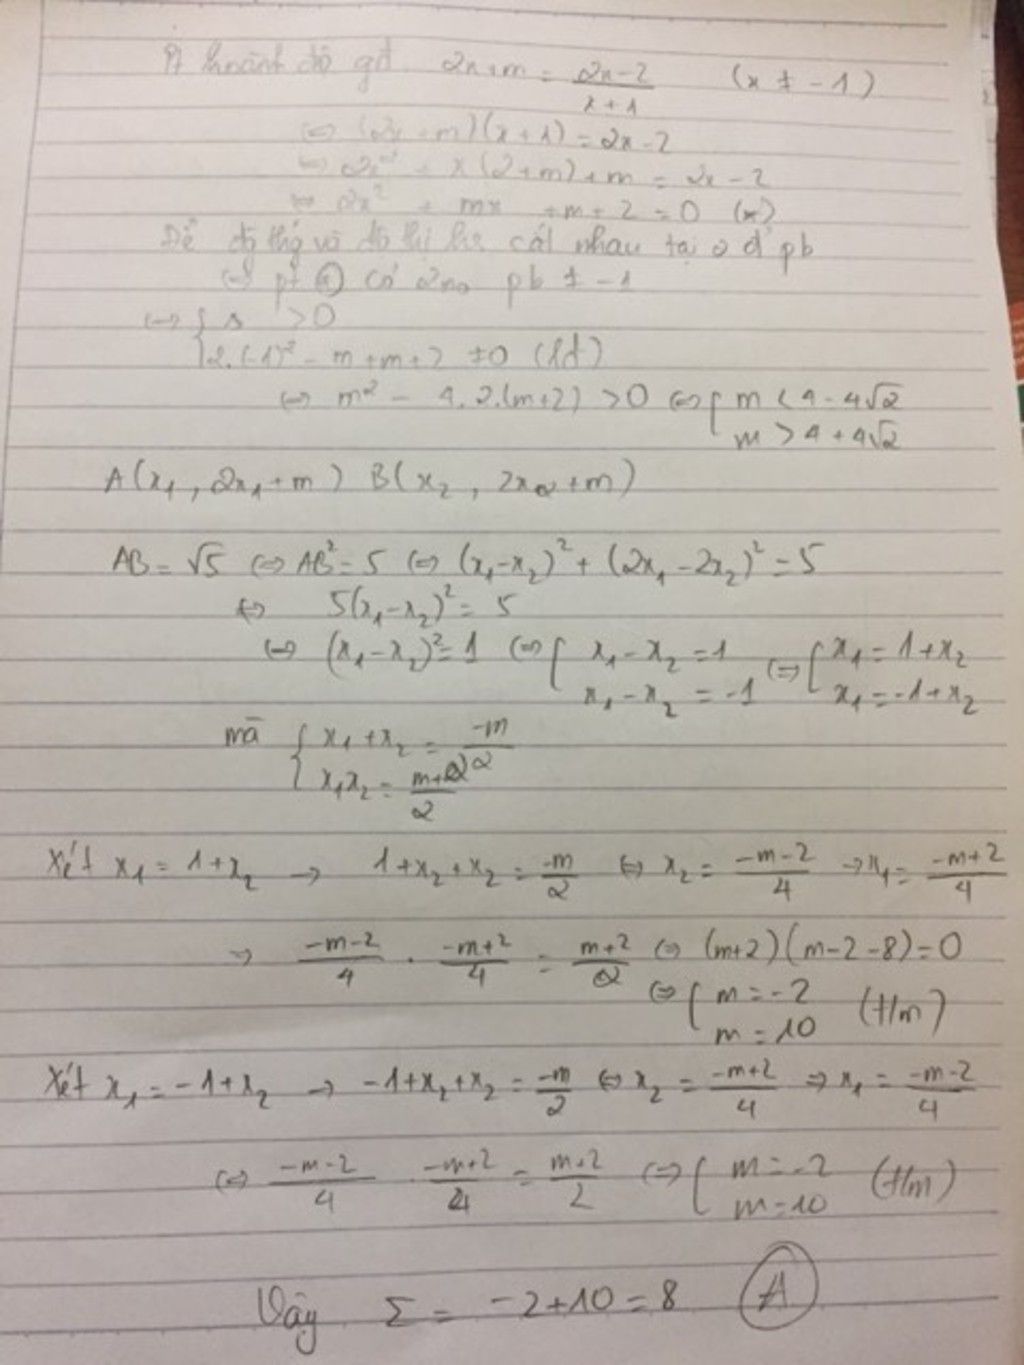 Pt hoành độ gđ 2x+m = \frac{2x-2}{x+1} (x ≠ -1)
⇔ (2x+m)(x+1) = 2x-2
⇔ 2x² + x(2+m)+m = 2x-2
⇔ 2x² + mx + m + 2 = 0 (*)
Để đg thg và đồ thị hs cắt nhau tại 2 đ' pb
⇔ pt có 2 no pb ≠ -1
⇔ { Δ > 0
2.(-1)² - m + m + 2 ≠ 0 (lđ)
⇔ m² - 4.2.(m+2) > 0 ⇔ [ m < 4 - 4√2
m > 4 + 4√2
A(x₁, 2x₁+m) B(x₂, 2x₂+m)
AB = √5 ⇔ AB² = 5 ⇔ (x₁-x₂)² + (2x₁-2x₂)² = 5
⇔ 5(x₁-x₂)² = 5
⇔ (x₁-x₂)² = 1 ⇔ [ x₁-x₂ = 1 ⇔ [ x₁ = 1+x₂
x₁-x₂ = -1 x₁ = -1+x₂
mà { x₁+x₂ = \frac{-m}{2}
x₁x₂ = \frac{m+2}{2}
Xét x₁ = 1+x₂ → 1+x₂+x₂ = \frac{-m}{2} ⇔ x₂ = \frac{-m-2}{4} → x₁ = \frac{-m+2}{4}
→ \frac{-m-2}{4} . \frac{-m+2}{4} = \frac{m+2}{2} ⇔ (m+2)(m-2-8) = 0
⇔ [ m = -2 (t/m)
m = 10
Xét x₁ = -1+x₂ → -1+x₂+x₂ = \frac{-m}{2} ⇔ x₂ = \frac{-m+2}{4} ⇒ x₁ = \frac{-m-2}{4}
⇔ \frac{-m-2}{4} . \frac{-m+2}{4} = \frac{m+2}{2} ⇔ [ m = -2 (t/m)
m = 10
Vậy Σ = -2+10 = 8 A